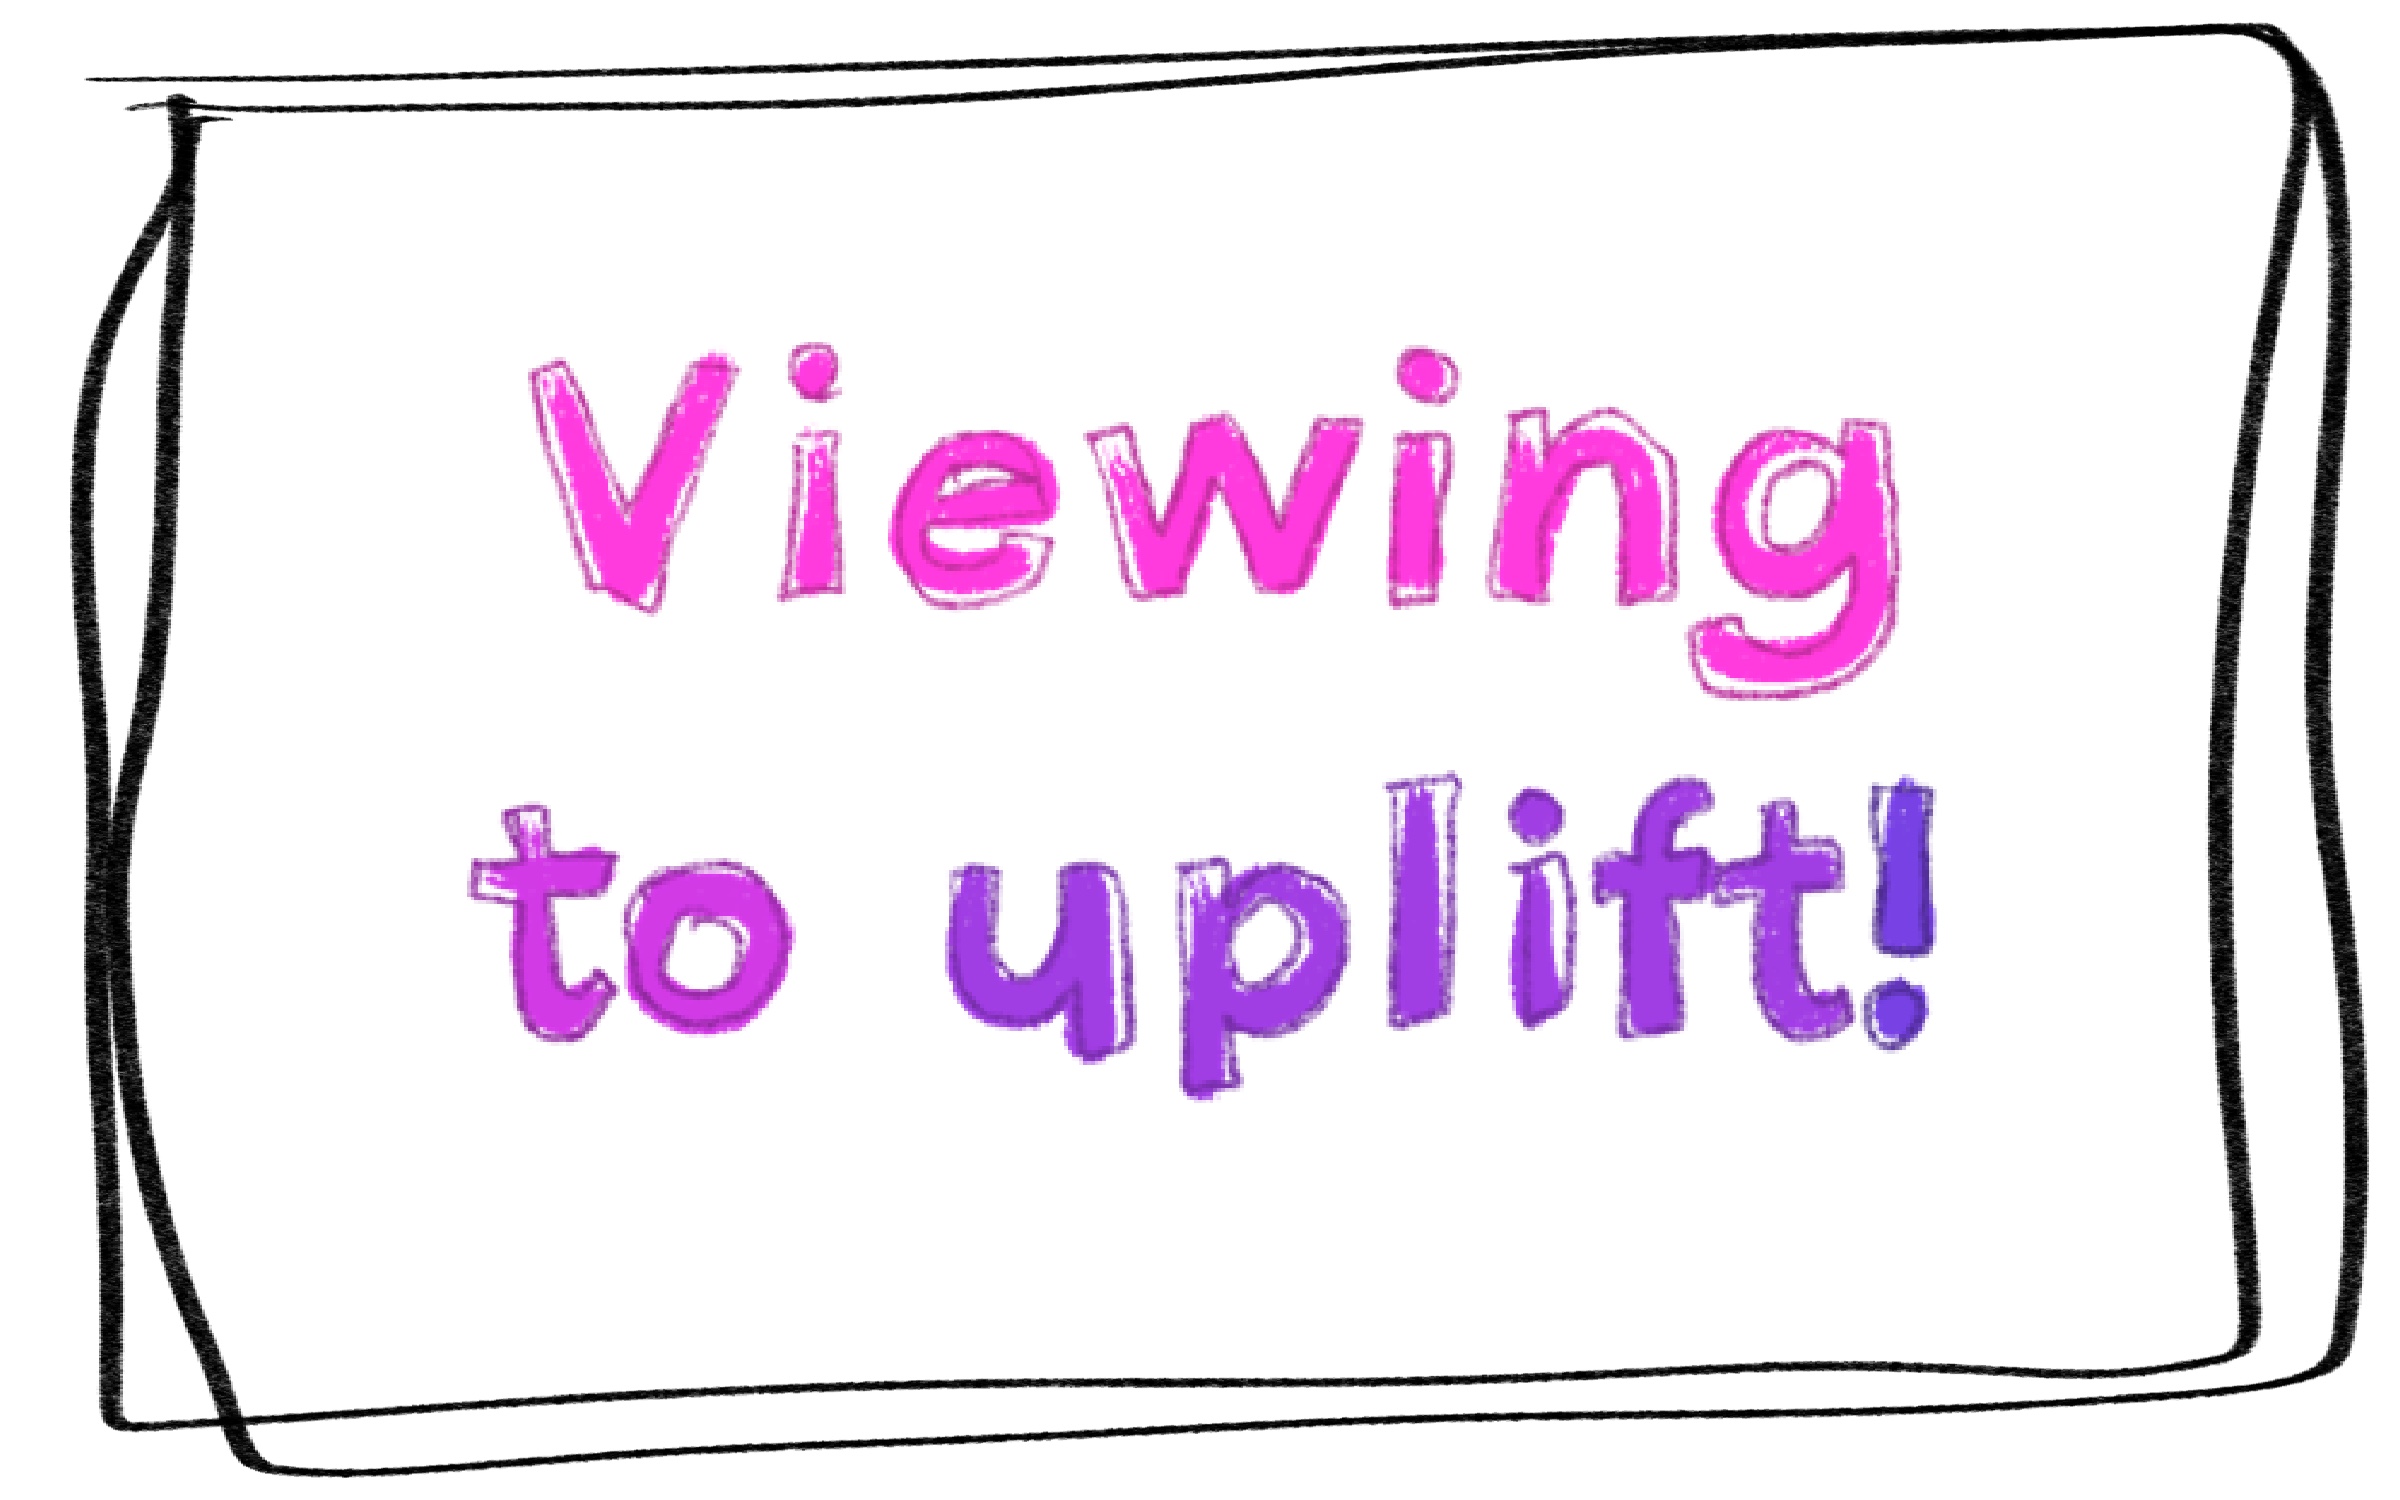 Viewing
to uplift!